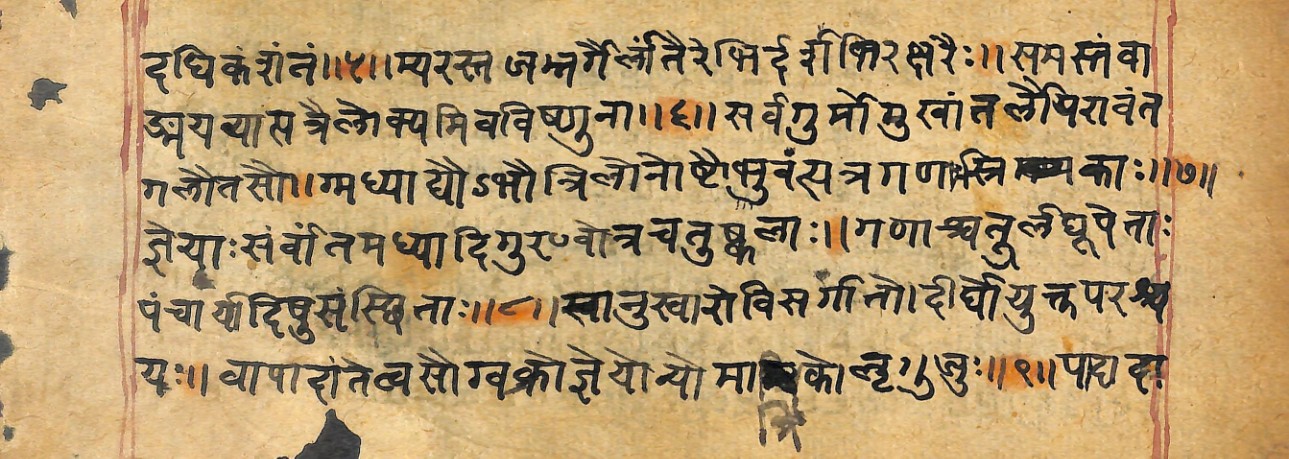 दधिकं शंतं ॥ ५ ॥ म्यरस्तजभ्नगैर्लांतैरेभिर्दर्शभिरक्षरैः ॥ समस्तं वा
ङ्मयं व्यासं त्रैलोक्यमिव विष्णुना ॥ ६ ॥ सर्वगुर्मो मुखांतर्लैयिरावंत
गलौतसौ ॥ ग्मध्याद्यौऽभौ त्रिलोनोष्टौ भुवंत्यत्र गणास्त्रिकाः ॥ ७ ॥
ज्ञेयाः सर्वांतमध्यादिगुरण्वोत्र चतुष्कलाः ॥ गणाश्चतुर्लघूपेताः
पंचार्यादिषु संस्छिताः ॥ ८ ॥ स्वानुस्वारो विसर्गांतो । दीर्घो युक्तपरश्च
यः ॥ वा पादांतेत्वसौ ग्वक्रो ज्ञेयोन्यो मा को लृगुजुः ॥ ९ ॥ पादादा